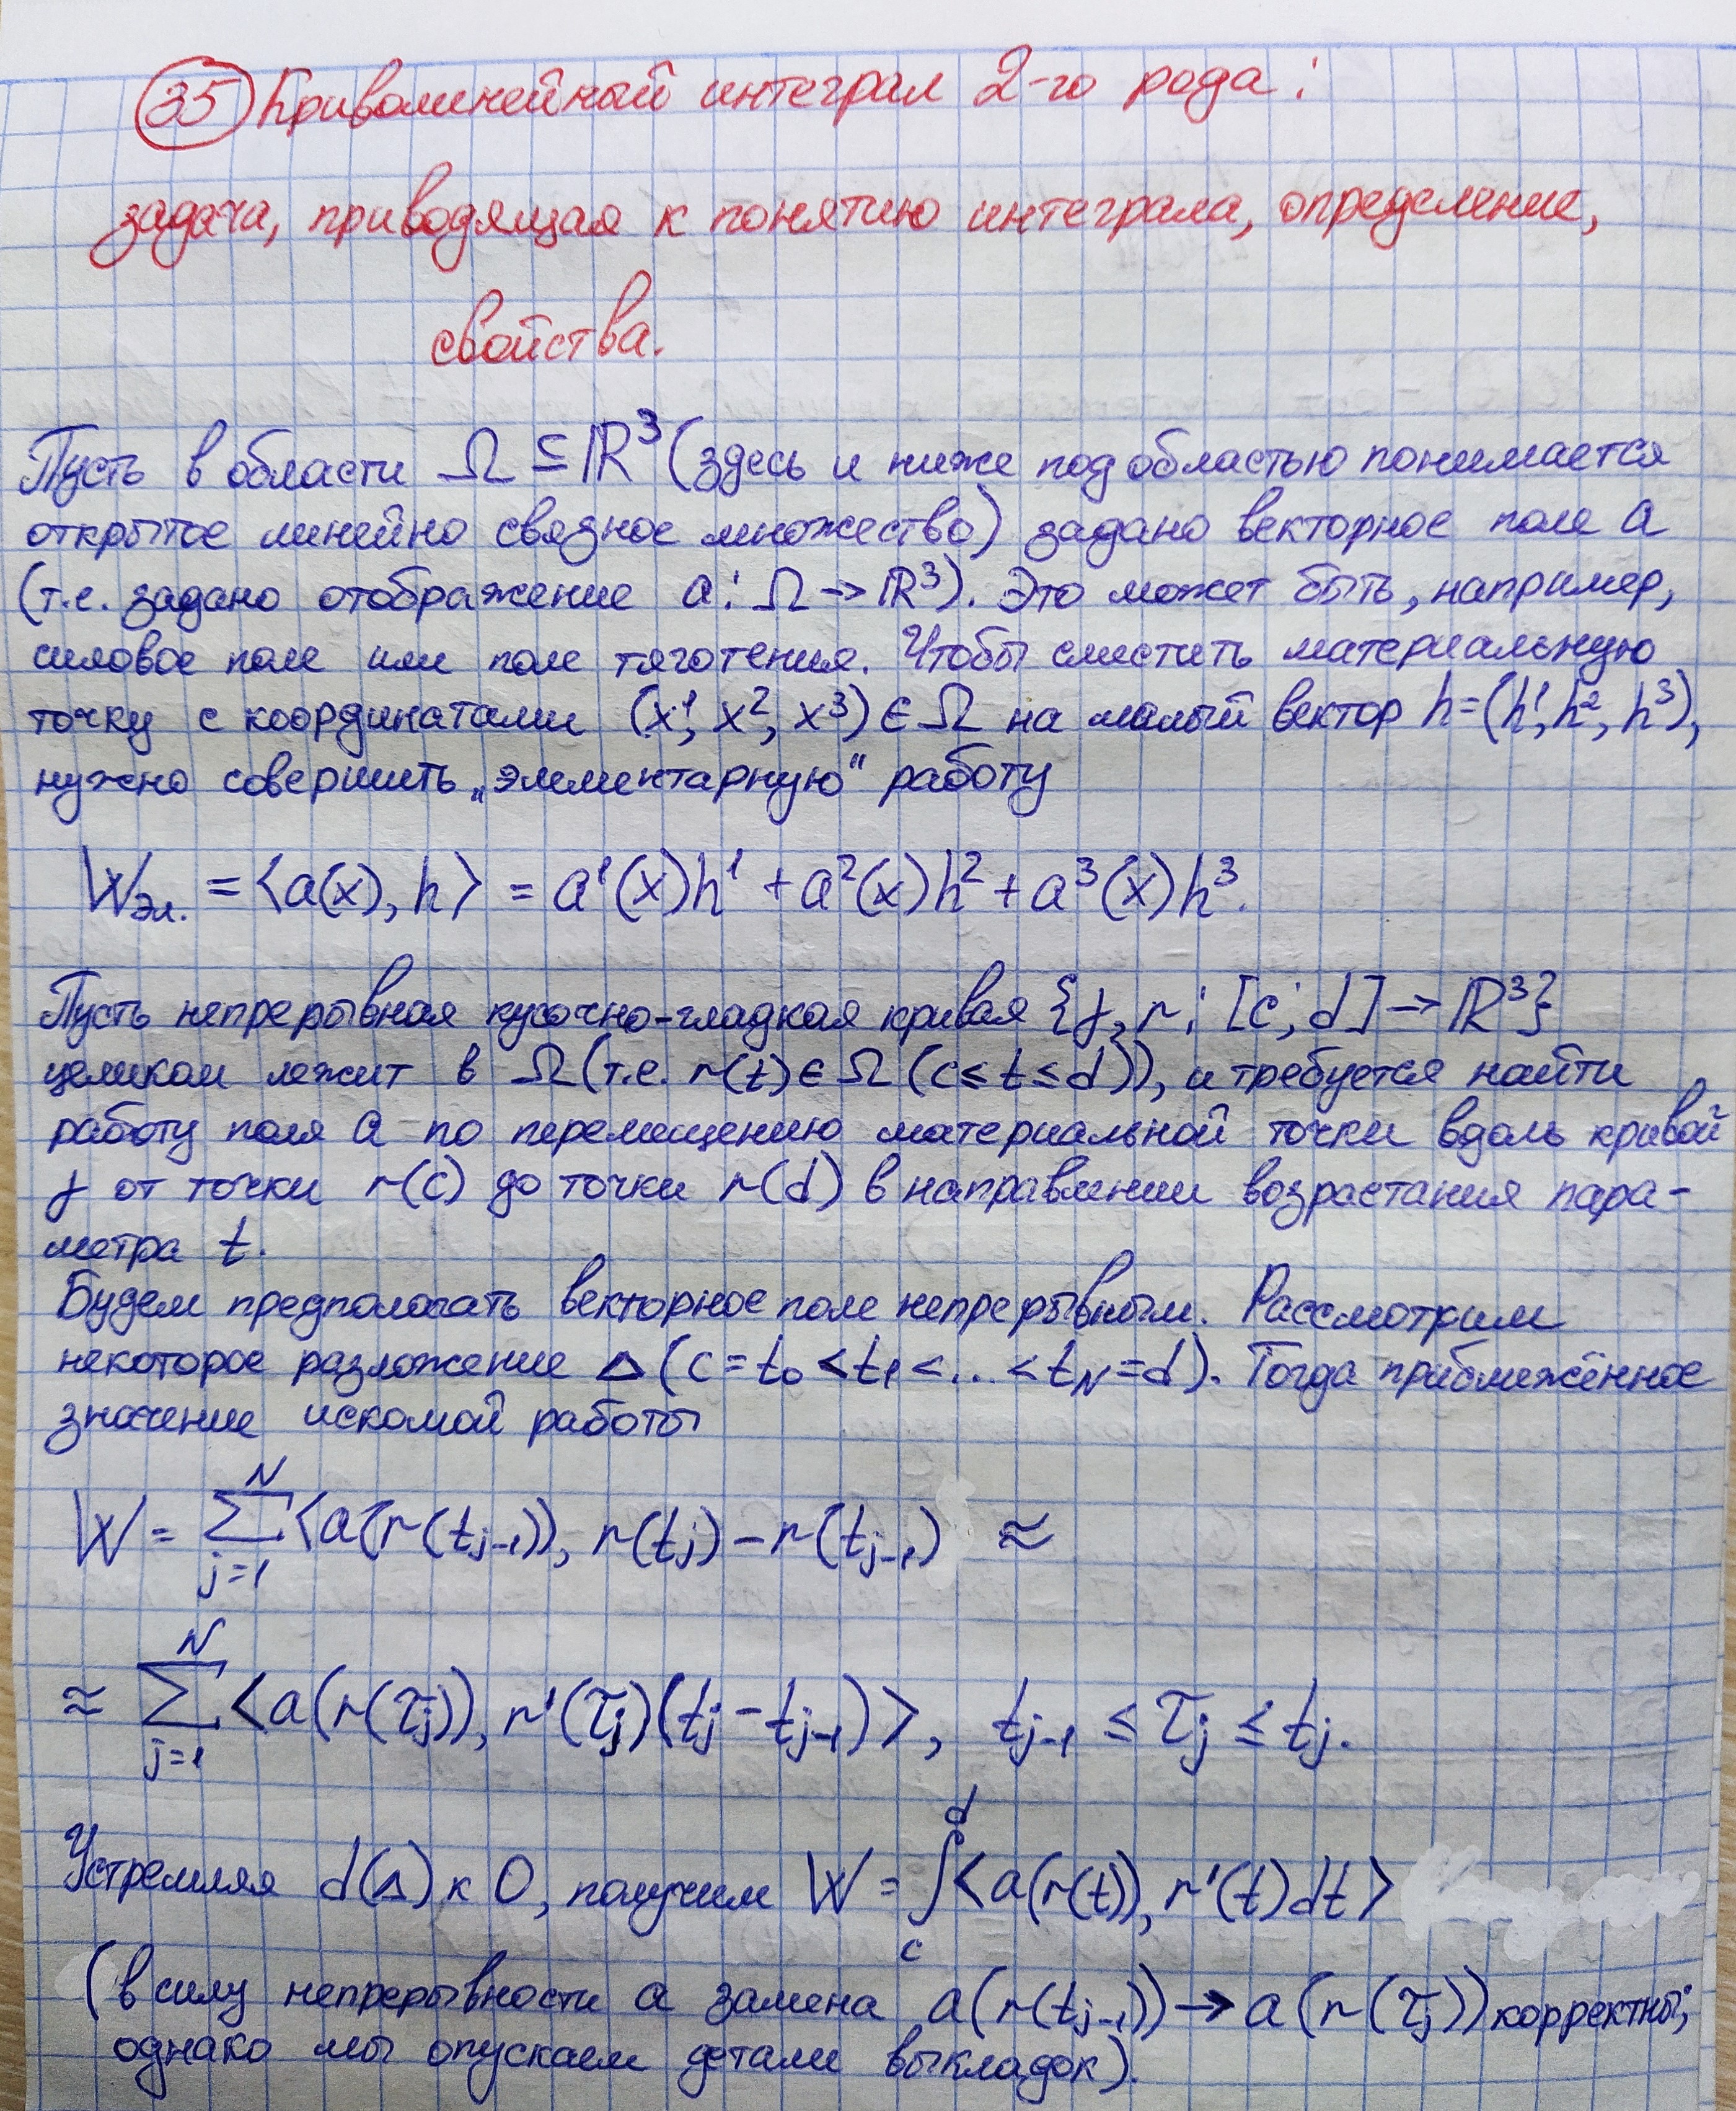 35 Криволинейный интеграл 2-го рода:
задача, приводящая к понятию интеграла, определение,
свойства.
Пусть в области Ω ⊆ ℝ³ (здесь и ниже под областью понимается
открытое линейно связное множество) задано векторное поле a
(т.е. задано отображение a: Ω → ℝ³). Это может быть, например,
силовое поле или поле тяготения. Чтобы сместить материальную
точку с координатами (x¹, x², x³) ∈ Ω на малый вектор h=(h¹, h², h³),
нужно совершить „элементарную“ работу
W эл. = ⟨a(x), h⟩ = a¹(x)h¹ + a²(x)h² + a³(x)h³.
Пусть непрерывная кусочно-гладкая кривая {γ, r: [c; d] → ℝ³}
целиком лежит в Ω (т.е. r(t) ∈ Ω (c ≤ t ≤ d)), и требуется найти
работу поля a по перемещению материальной точки вдоль кривой
γ от точки r(c) до точки r(d) в направлении возрастания пара-
метра t.
Будем предполагать векторное поле непрерывным. Рассмотрим
некоторое разложение Δ (c = t₀ < t₁ < ... < t_N = d). Тогда приближённое
значение искомой работы
W = ∑_{j=1}^{N} ⟨a(r(t_{j-1})), r(t_j) − r(t_{j-1}) ≈
≈ ∑_{j=1}^{N} ⟨a(r(τ_j)), r'(τ_j)(t_j − t_{j-1})⟩, t_{j-1} ≤ τ_j ≤ t_j.
Устремляя d(Δ) к 0, получим W = ∫_c^d ⟨a(r(t)), r'(t)dt⟩
(в силу непрерывности a замена a(r(t_{j-1})) → a(r(τ_j)) корректны;
однако мы опускаем детали выкладок).